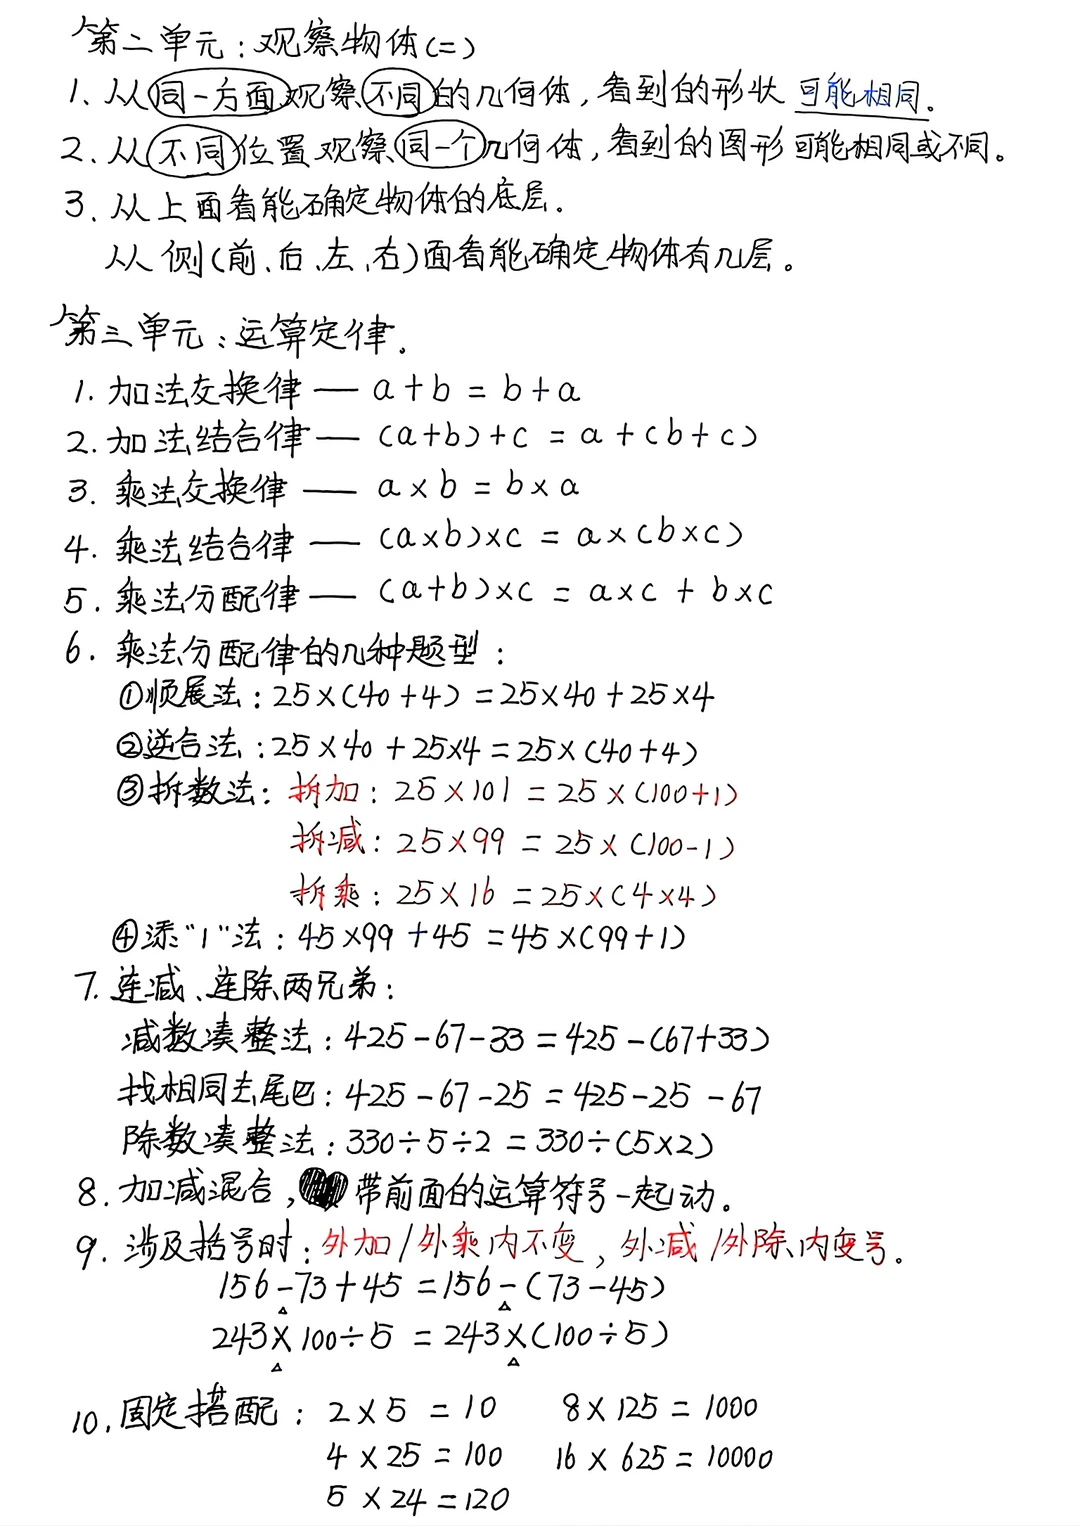 第二单元:观察物体(二)
1、从同一方面观察不同的几何体,看到的形状可能相同.
2、从不同位置观察同一个几何体,看到的图形可能相同或不同。
3、从上面看能确定物体的底层.
从侧(前、后、左、右)面看能确定物体有几层。
第三单元:运算定律.
1. 加法交换律 — a+b = b+a
2. 加法结合律 — (a+b)+c = a+(b+c)
3. 乘法交换律 — a×b = b×a
4. 乘法结合律 — (a×b)×c = a×(b×c)
5. 乘法分配律 — (a+b)×c = a×c + b×c
6. 乘法分配律的几种题型:
①顺展法:25×(40+4)=25×40+25×4
②逆合法:25×40+25×4=25×(40+4)
③拆数法:拆加:25×101=25×(100+1)
拆减:25×99=25×(100-1)
拆乘:25×16=25×(4×4)
④添“1”法:45×99+45=45×(99+1)
7.连减、连除两兄弟:
减数凑整法:425-67-33=425-(67+33)
找相同去尾巴:425-67-25=425-25-67
除数凑整法:330÷5÷2=330÷(5×2)
8.加减混合,带前面的运算符号一起动。
9.涉及括号时:外加/外乘内不变,外减/外除内变号。
156-73+45=156-(73-45)
243×100÷5=243×(100÷5)
10.固定搭配:2×5=10 8×125=1000
4×25=100 16×625=10000
5×24=120